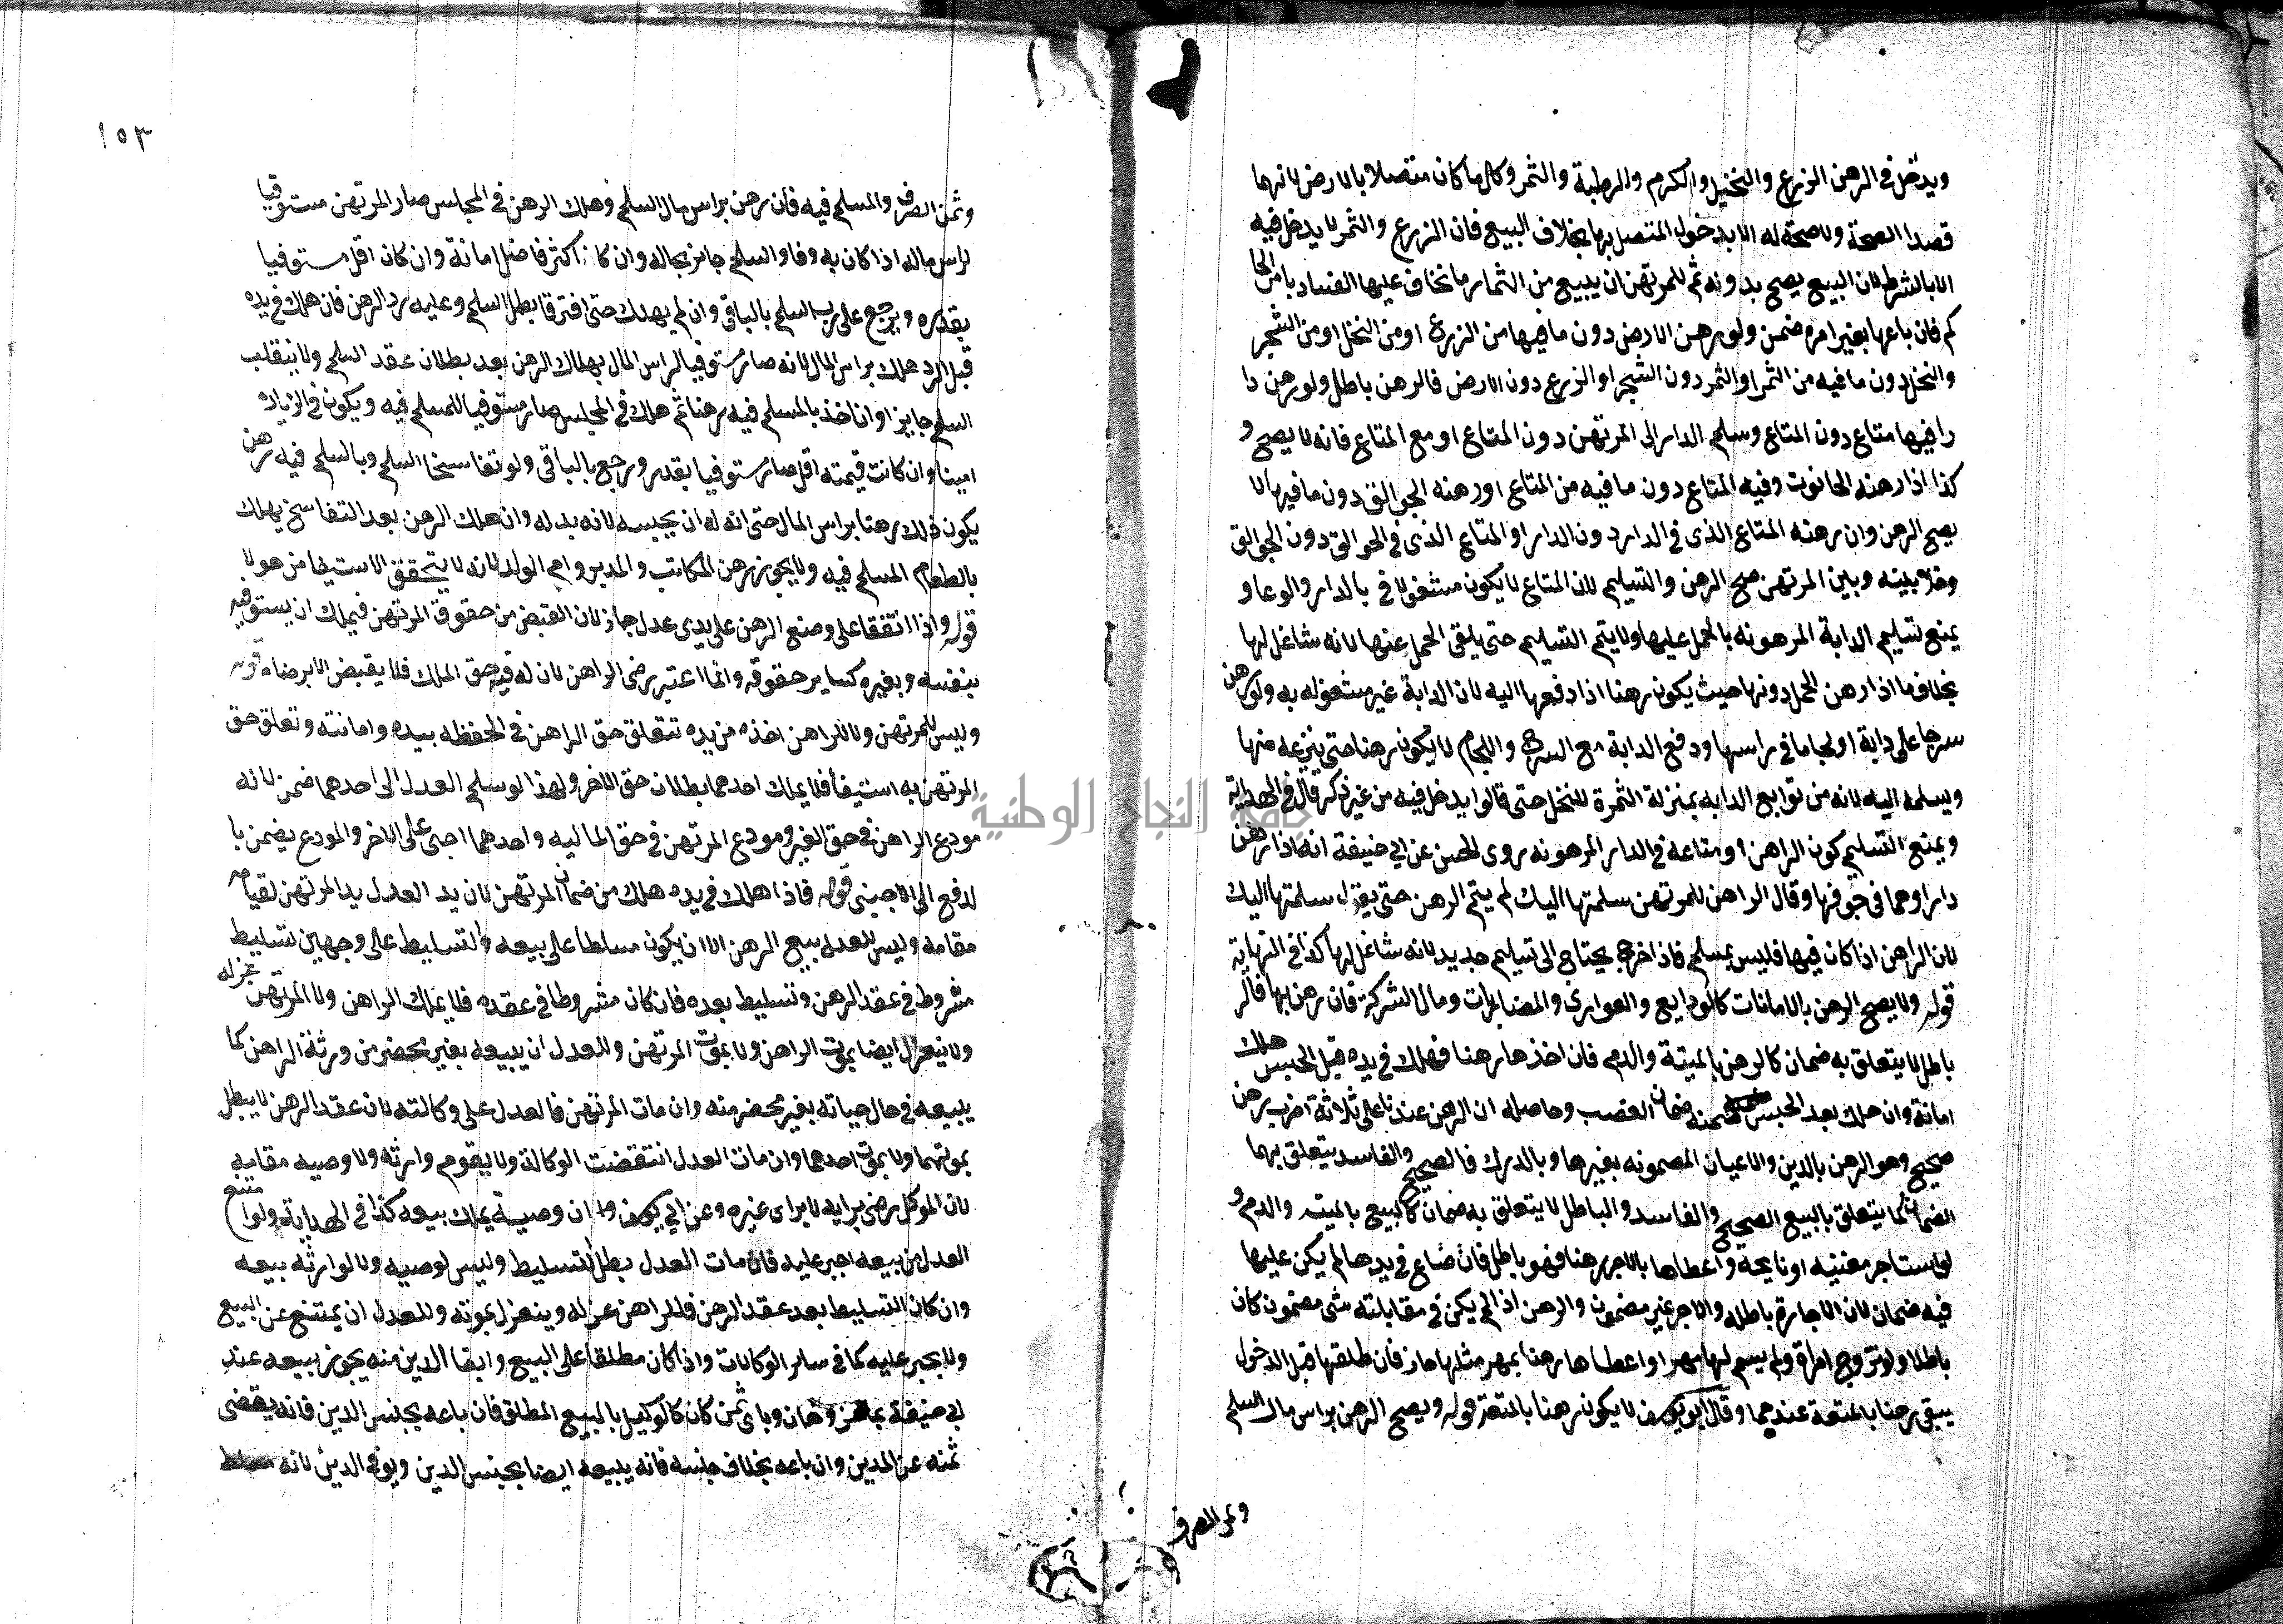 ويدخل في الرهن الزرع والنخيل والكرم والرطبة والثمر وكل ما كان متصلا بالارض لانهما
قصدا الصحة ولا صحة له الا بدخول المتصل بها بخلاف البيع فان الزرع والثمر لا يدخل فيه
الا بالشرط لان البيع يصح بدونه ثم للمرتهن ان يبيع من الثمار ما تخاف عليها الفساد بامر الحا
كم فان باعها بغير امره ضمن ولو رهن الارض دون ما فيها من الزرع او من النخل او من الشجر
والنخل دون ما فيه من الثمر او الثمر دون الشجر او الزرع دون الارض فالرهن باطل ولو رهن دا
را فيها متاع دون المتاع وسلم الدار الى المرتهن دون المتاع او مع المتاع فانه لا يصح و
كذا اذا رهنه الحانوت وفيه المتاع دون ما فيه من المتاع او رهنه الجوالق دون ما فيها لا
يصح الرهن وان رهنه المتاع الذي في الدار دون الدار او المتاع الذي في الجوالق دون الجوالق
وخلا بينه وبين المرتهن صح الرهن والتسليم لان المتاع لا يكون مشغولا في بالدار والوعاو
يمنع تسليم الدابة المرهونه بالحمل عليها ولا يتم التسليم حتى يلقى الحمل عنها لانه شاغل لها
بخلاف ما اذا رهن الحمل دونها حيث يكون رهنا اذا دفعها اليه لان الدابة غير مشغوله به ولو رهن
سرجا على دابة او لجاما في راسها ودفع الدابة مع السرج واللجام لا يكون رهنا حتى ينزعه منها
ويسلمه اليه لانه من توابع الدابه بمنزلة الثمرة للنخل حتى قالوا يدخل فيه من غير ذكر قال في الهداية
ويمنع التسليم كون الراهن او متاعه في الدار المرهونه روى الحسن عن ابي حنيفة انه اذا رهن
دارا وهما في جوفها وقال الراهن للمرتهن سلمتها اليك لم يتم الرهن حتى يقول سلمتها اليك
لان الراهن اذا كان فيها فليس بمسلم فاذا خرج يحتاج الى تسليم جديد لانه شاغل لها كذا في النهاية
قوله ولا يصح الرهن بالامانات كالودايع والعواري والمضاربات ومال الشركة فان رهن بها فالر
باطل لا يتعلق به ضمان كالرهن بالميتة والدم فان اخذها رهنا فهلك في يده قبل الحبس هلك
امانة وان هلك بعد الحبس ضمنه ضمان الغصب وحاصله ان الرهن عندنا على ثلاثة اضرب رهن
صحيح وهو الرهن بالدين والاعيان المضمونه بغيرها وبالدرك فالصحيح والفاسد يتعلق بهما
الضمان كما يتعلق بالبيع الصحيح والفاسد والباطل لا يتعلق به ضمان كالبيع بالميته والدم و
لو استاجر مغنيه او نايحه واعطاها بالاجر رهنا فهو باطل فان ضاع في يدها لم يكن عليها
فيه ضمان لان الاجارة باطله والاجر غير مضمون والرهن اذا لم يكن في مقابلته شي مضمون كان
باطلا ولو تزوج امراة ولم يسم لها مهرا واعطاها رهنا بمهر مثلها جاز فان طلقها قبل الدخول
يبقى رهنا بالمتعة عندهما وقال ابو يوسف لا يكون رهنا بالمتعة قوله ويصح الرهن براس مال السلم
١٥٣
وثمن الصرف والمسلم فيه فان رهن براس مال السلم وهلك الرهن في المجلس صار المرتهن مستوفيا
لراس ماله اذا كان به وفا والسلم جايز بحاله وان كان اكثر فالفضل امانة وان كان اقل مستوفيا
بقدره ويرجع على رب السلم بالباقي وان لم يهلك حتى افترقا بطل السلم وعليه رد الرهن فان هلك في يده
قبل الرد هلك براس المال لانه صار مستوفيا لراس المال بهلاك الرهن بعد بطلان عقد السلم ولا ينقلب
السلم جايزا وان اخذ بالمسلم فيه رهنا ثم هلك في المجلس صار مستوفيا للمسلم فيه ويكون في الزياده
امينا وان كانت قيمته اقل صار مستوفيا بقدره ورجع بالباقي ولو تفاسخا السلم وبالسلم فيه رهن
يكون ذلك رهنا براس المال حتى انه له ان يحبسه لانه بدله وان هلك الرهن بعد التفاسخ يهلك
بالطعام المسلم فيه ولا يجوز رهن المكاتب والمدبر وام الولد لانه لا يتحقق الاستيفا من هولا
قوله واذا اتفقا على وضع الرهن على يدي عدل جاز لان القبض من حقوق المرتهن فيملك ان يستوفيه
بنفسه وبغيره كساير حقوقه وانما اعتبر رضى الراهن لان له فيه حق الملك فلا يقبض الا برضاه قوله
وليس للمرتهن ولا للراهن اخذه من يده تتعلق حق الراهن في الحفظ بيده وامانته وتعلق حق
المرتهن به استيفا فلا يملك احدهما بطلان حق الاخر ولهذا لو سلم العدل الى احدهما ضمن لانه
مودع الراهن في حق الغير ومودع المرتهن في حق الماليه واحدهما اجنبي على الاخر والمودع يضمن با
لدفع الى الاجنبي قوله فاذا هلك في يده هلك من ضمان المرتهن لان يد العدل يد المرتهن لقيامه
مقامه وليس للعدل بيع الرهن الا ان يكون مسلطا على بيعه والتسليط على وجهين تسليط
مشروط في عقد الرهن وتسليط بعده فان كان مشروطا في عقده فلا يملك الراهن ولا المرتهن عزله
ولا ينعزل ايضا بموت الراهن ولا بموت المرتهن وللعدل ان يبيعه بغير محضر من ورثة الراهن كما
يبيعه في حال حياته بغير محضر منه وان مات المرتهن فالعدل على وكالته لان عقد الرهن لا يبطل
بموتهما ولا بموت احدهما وان مات العدل انتقضت الوكالة ولا يقوم وارثه ولا وصيه مقامه
لان الموكل رضي برايه لا براى غيره وعن ابي يوسف ان وصيه يملك بيعه كذا في الهداية ولو امتنع
العدل من بيعه اجبر عليه فان مات العدل بطل التسليط وليس لوصيه ولا لوارثه بيعه
وان كان التسليط بعد عقد الرهن فللراهن عزله وينعزل بموته وللعدل ان يمتنع عن البيع
ولا يجبر عليه كما في ساير الوكالات واذا كان مطلقا على البيع وايفا الدين منه يجوز بيعه عند
ابي حنيفة بما عز وهان وباي ثمن كان كالوكيل بالبيع المطلق فان باعه بجنس الدين فانه يقضى
ثمنه عن الدين وان باعه بخلاف جنسه فانه يبيعه ايضا بجنس الدين ويوفي الدين لانه مسلط
وثمن الصرف
جامعة النجاح الوطنية